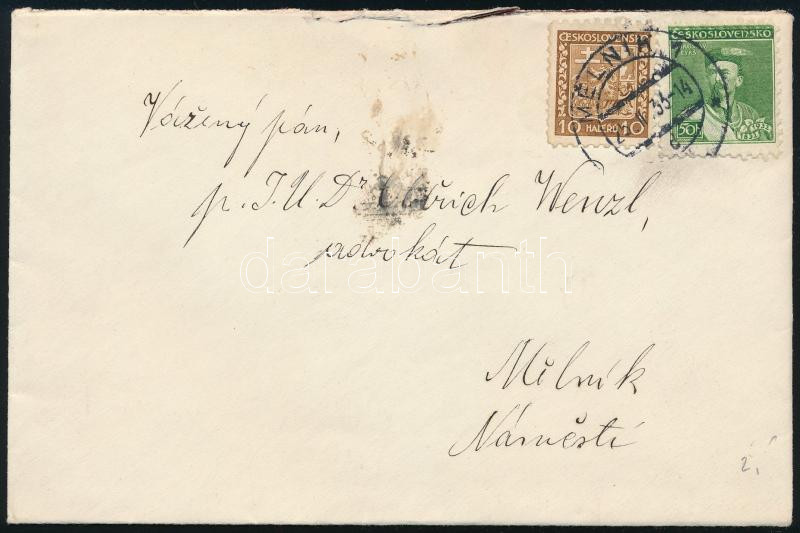 ČESKOSLOVENSKO
10 HALÉŘŮ 10
ČESKOSLOVENSKO
50H
1832
1932
MĚLNÍK
33-14
Vážený pán,
p. J.U.Dr Oldřich Wenzl,
advokát
darabanth
Mělník
Náměstí
2,